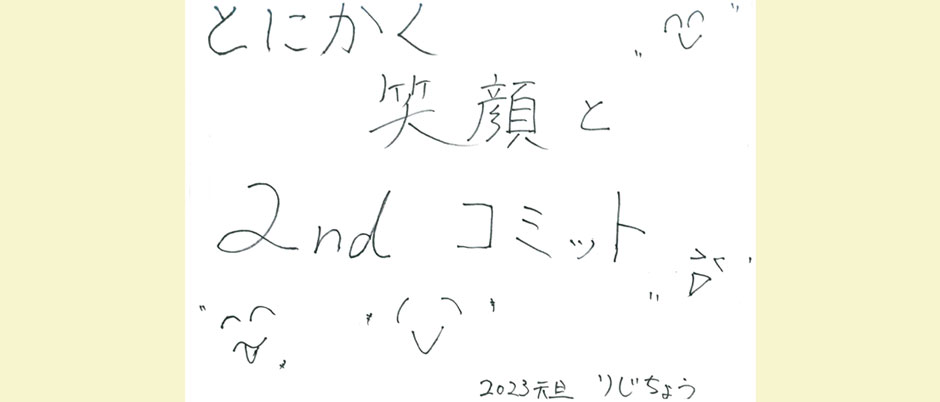 とにかく
笑顔と
2nd コミット
2023元旦 りじちょう